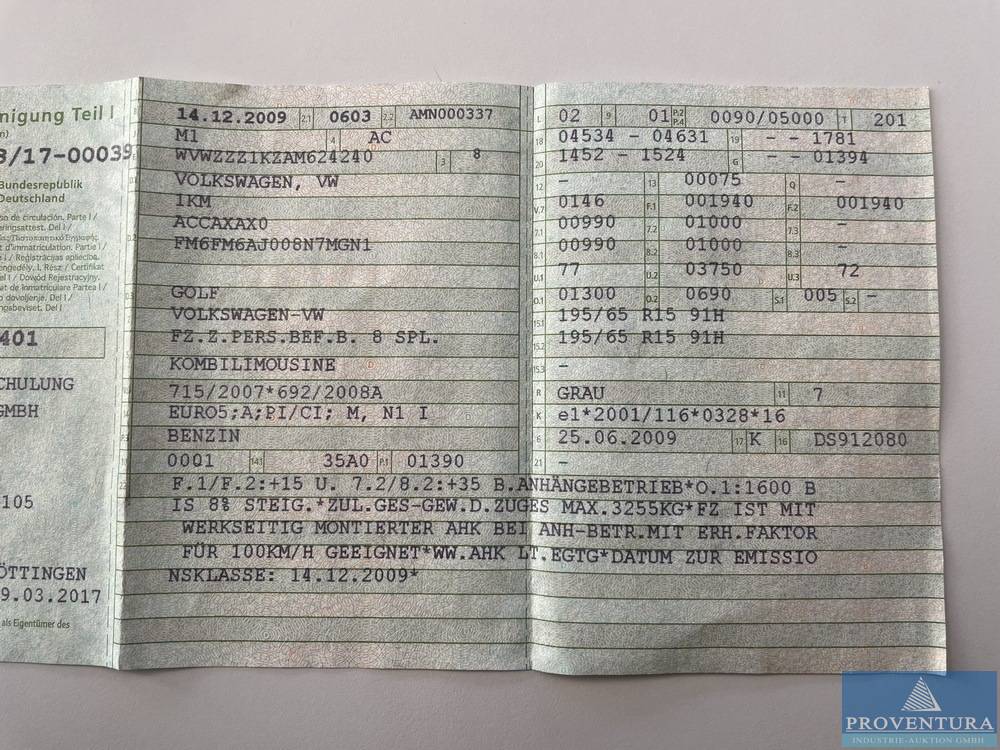 nigung Teil I
8/17-00039
Bundesrepublik
Deutschland
401
CHULUNG
GMBH
105
ÖTTINGEN
9.03.2017
als Eigentümer des
14.12.2009 2.1 0603 2.2 AMN000337
M1 4 AC
WVWZZZ1KZAM624240 3 8
VOLKSWAGEN, VW
1KM
ACCAXAX0
FM6FM6AJ008N7MGN1
GOLF
VOLKSWAGEN-VW
FZ.Z.PERS.BEF.B. 8 SPL.
KOMBILIMOUSINE
715/2007*692/2008A
EURO5;A;PI/CI; M, N1 I
BENZIN
0001 14.1 35A0 P.1 01390
L 02 9 01 P.2 P.4 0090/05000 T 201
18 04534 - 04631 19 - - 1781
20 1452 - 1524 G - - 01394
12 - 13 00075 Q -
V.7 0146 F.1 001940 F.2 001940
7.1 00990 7.2 01000 7.3 -
8.1 00990 8.2 01000 8.3 -
U.1 77 U.2 03750 U.3 72
O.1 01300 O.2 0690 S.1 005 S.2 -
15.1 195/65 R15 91H
15.2 195/65 R15 91H
15.3 -
R GRAU 11 7
K e1*2001/116*0328*16
6 25.06.2009 17 K 16 DS912080
21 -
22 F.1/F.2:+15 U. 7.2/8.2:+35 B.ANHÄNGEBETRIEB*O.1:1600 B
IS 8% STEIG.*ZUL.GES-GEW.D.ZUGES MAX.3255KG*FZ IST MIT
WERKSEITIG MONTIERTER AHK BEI ANH-BETR.MIT ERH.FAKTOR
FÜR 100KM/H GEEIGNET*WW.AHK LT.EGTG*DATUM ZUR EMISSIO
NSKLASSE: 14.12.2009*
PROVENTURA
INDUSTRIE-AUKTION GMBH